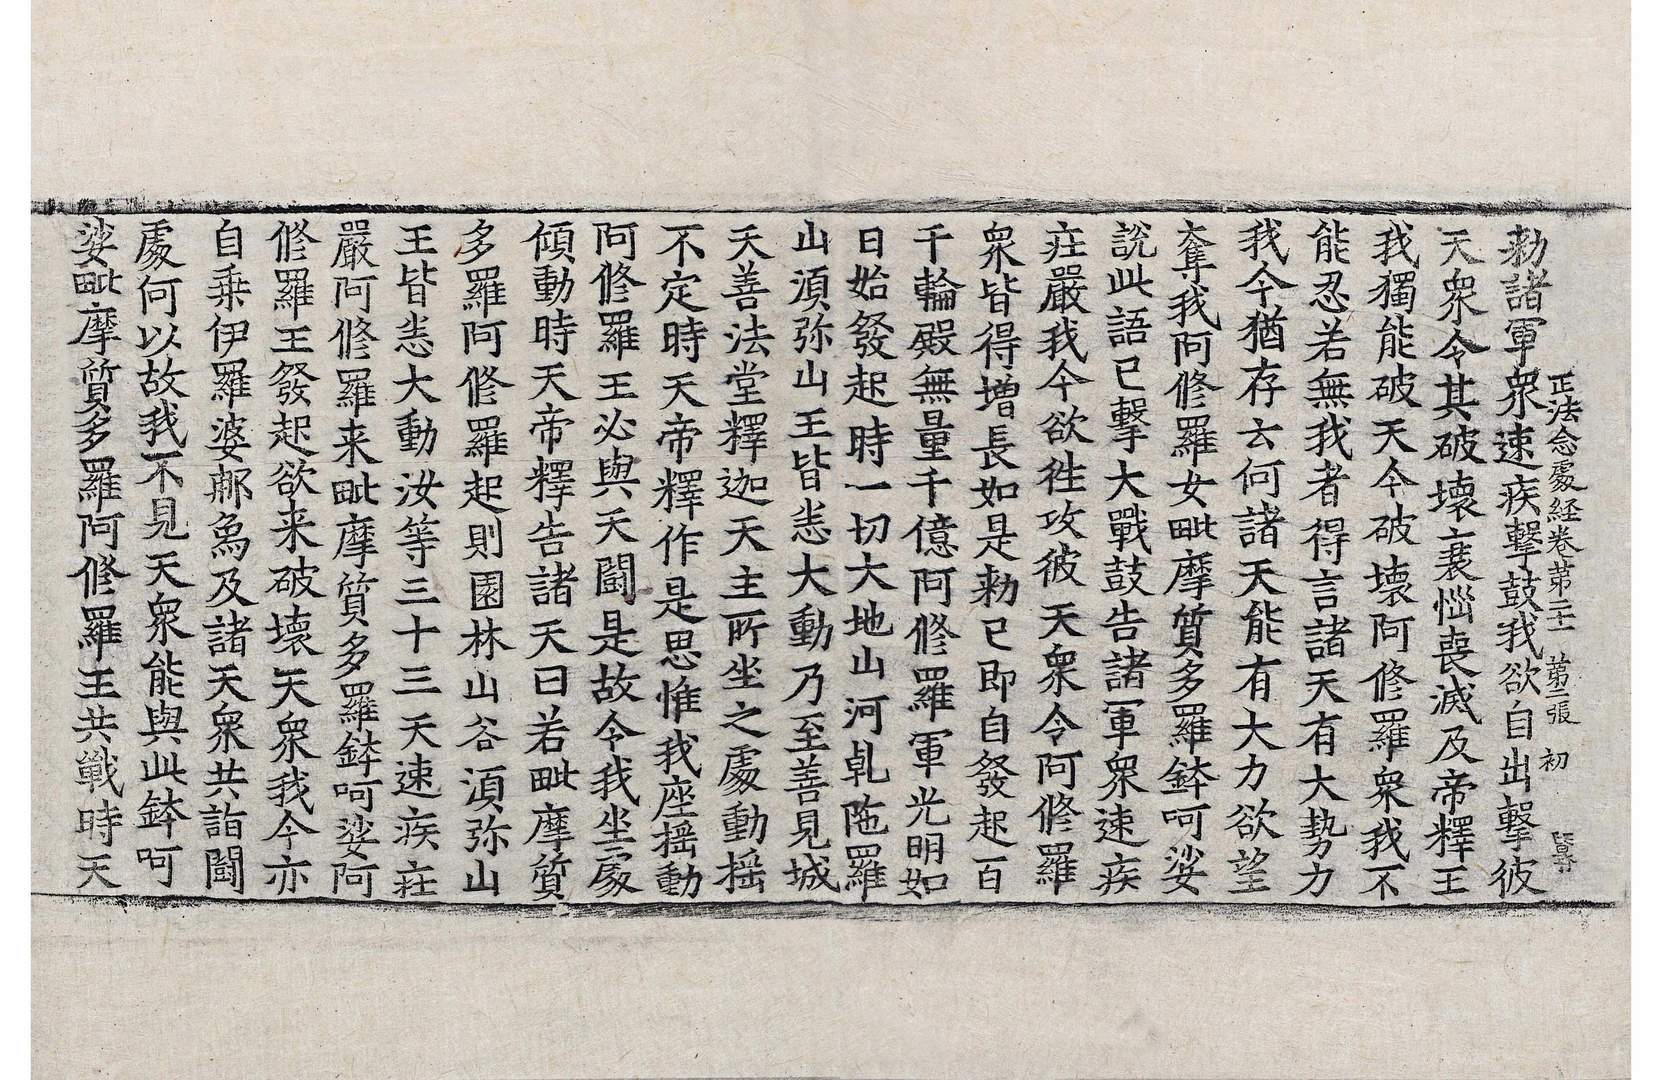 正法念處経卷第二十一 第二張 初
勑諸軍衆速疾擊鼓我欲自出擊彼
天衆令其破壞衰惱喪滅及帝釋王
我獨能破天今破壞阿修羅衆我不
能忍若無我者得言諸天有大勢力
我今猶存云何諸天能有大力欲望
奪我阿修羅女毗摩質多羅鉢呵娑
說此語已擊大戰鼓告諸軍衆速疾
莊嚴我今欲往攻彼天衆令阿修羅
衆皆得增長如是勑已即自發起百
千輪殿無量千億阿修羅軍光明如
日始發起時一切大地山河乹陁羅
山湏弥山王皆悉大動乃至善見城
天善法堂釋迦天主所坐之處動揺
不定時天帝釋作是思惟我座揺動
阿修羅王必與天闘是故令我坐處
傾動時天帝釋告諸天曰若毗摩質
多羅阿修羅起則園林山谷湏弥山
王皆悉大動汝等三十三天速疾莊
嚴阿修羅来毗摩質多羅鉢呵娑阿
修羅王發起欲来破壞天衆我今亦
自乗伊羅婆郍象及諸天衆共詣闘
處何以故我不見天衆能與此鉢呵
娑毗摩質多羅阿修羅王共戰時天